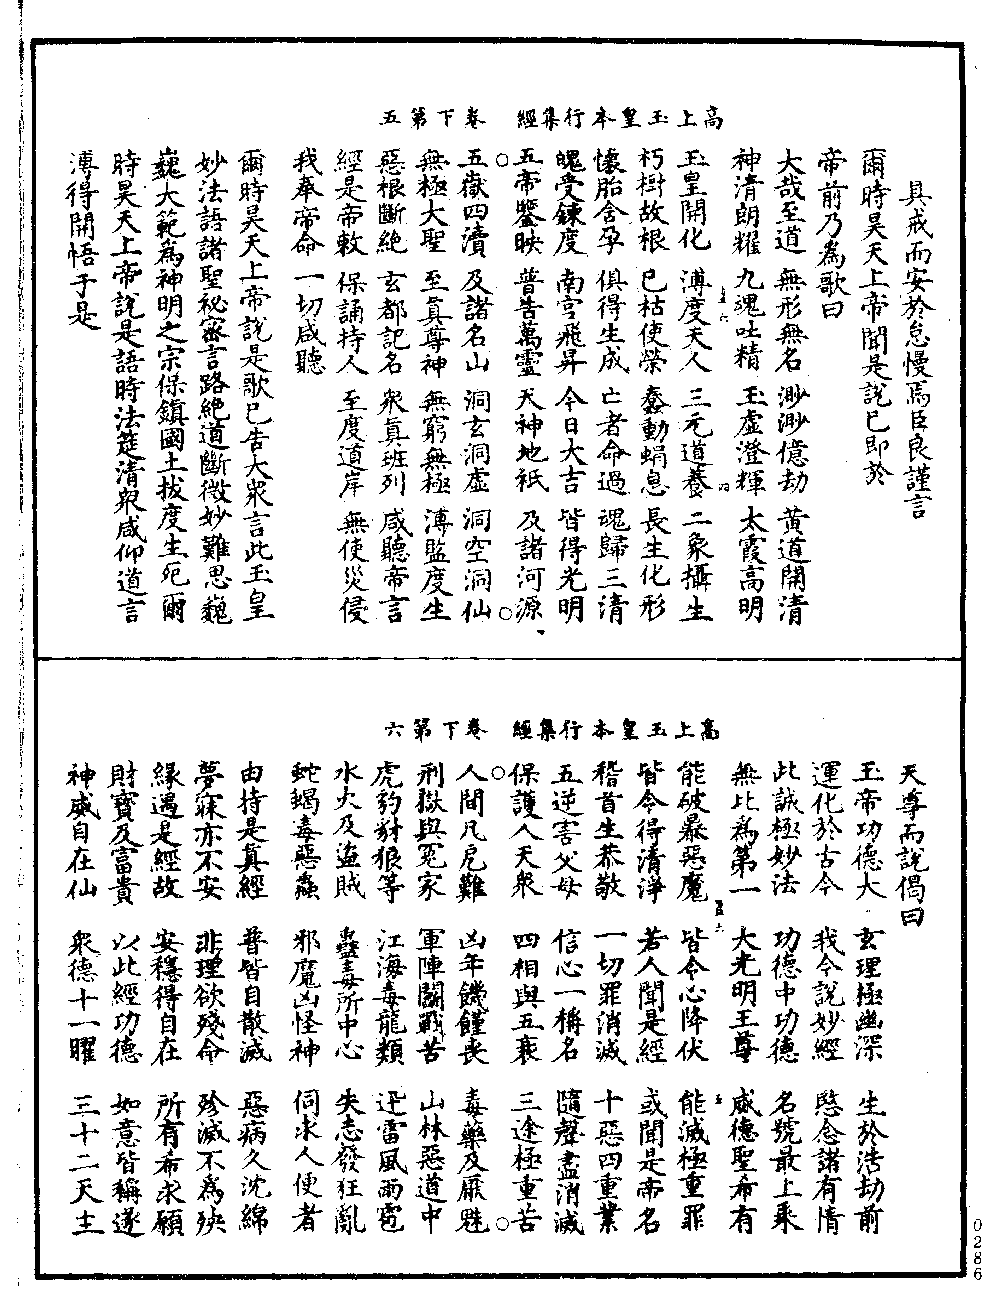 高上玉皇本行集經　卷下第五
具戒而安於怠慢焉臣良謹言
爾時昊天上帝聞是說已即於
帝前乃為歌曰
大哉至道　無形無名　渺渺億劫　黃道開清
神清朗耀　九魂吐精　玉虛澄輝　太霞高明
玉皇開化　溥度天人　三元道養　二象攝生
朽樹故根　已枯使榮　蠢動蜎息　長生化形
懷胎含孕　俱得生成　亡者命過　魂歸三清
魄受鍊度　南宮飛昇　今日大吉　皆得光明
五帝鑒映　普告萬靈　天神地祇　及諸河源
五嶽四瀆　及諸名山　洞玄洞虛　洞空洞仙
無極大聖　至真尊神　無窮無極　溥監度生
惡根斷絕　玄都記名　眾真班列　咸聽帝言
經是帝敕　保誦持人　至度道岸　無使災侵
我奉帝命　一切咸聽
爾時昊天上帝說是歌已告大眾言此玉皇
妙法語諸聖祕密言路絕道斷微妙難思巍
巍大範為神明之宗保鎮國土拔度生死爾
時昊天上帝說是語時法筵清眾咸仰道言
溥得開悟于是
高上玉皇本行集經　卷下第六
天尊而說偈曰
玉帝功德大　玄理極幽深　生於浩劫前
運化於古今　我今說妙經　愍念諸有情
此誠極妙法　功德中功德　名號最上乘
無比為第一　大光明王尊　威德聖希有
能破暴惡魔　皆令心降伏　能滅極重罪
皆令得清淨　若人聞是經　或聞是帝名
稽首生恭敬　一切罪消滅　十惡四重業
五逆害父母　信心一稱名　隨聲盡消滅
保護人天眾　四相與五衰　三途極重苦
人間凡危難　凶年饑饉喪　毒藥及厭魅
刑獄與冤家　軍陣鬬戰苦　山林惡道中
虎豹豺狼等　江海毒龍類　迅雷風雨雹
水火及盜賊　蠱毒所中心　失志發狂亂
蛇蝎毒惡蟲　邪魔凶怪神　伺求人便者
由持是真經　普皆自散滅　惡病久沈綿
夢寐亦不安　非理欲殘命　殄滅不為殃
緣遇是經故　安穩得自在　所有希求願
財寶及富貴　以此經功德　如意皆稱遂
神威自在仙　眾德十一曜　三十二天主
0286